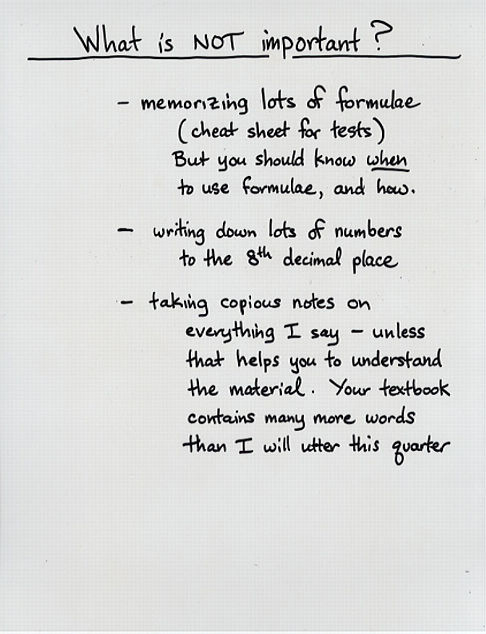 What is NOT important?
- memorizing lots of formulae
(cheat sheet for tests)
But you should know when
to use formulae, and how.
- writing down lots of numbers
to the 8th decimal place
- taking copious notes on
everything I say - unless
that helps you to understand
the material. Your textbook
contains many more words
than I will utter this quarter